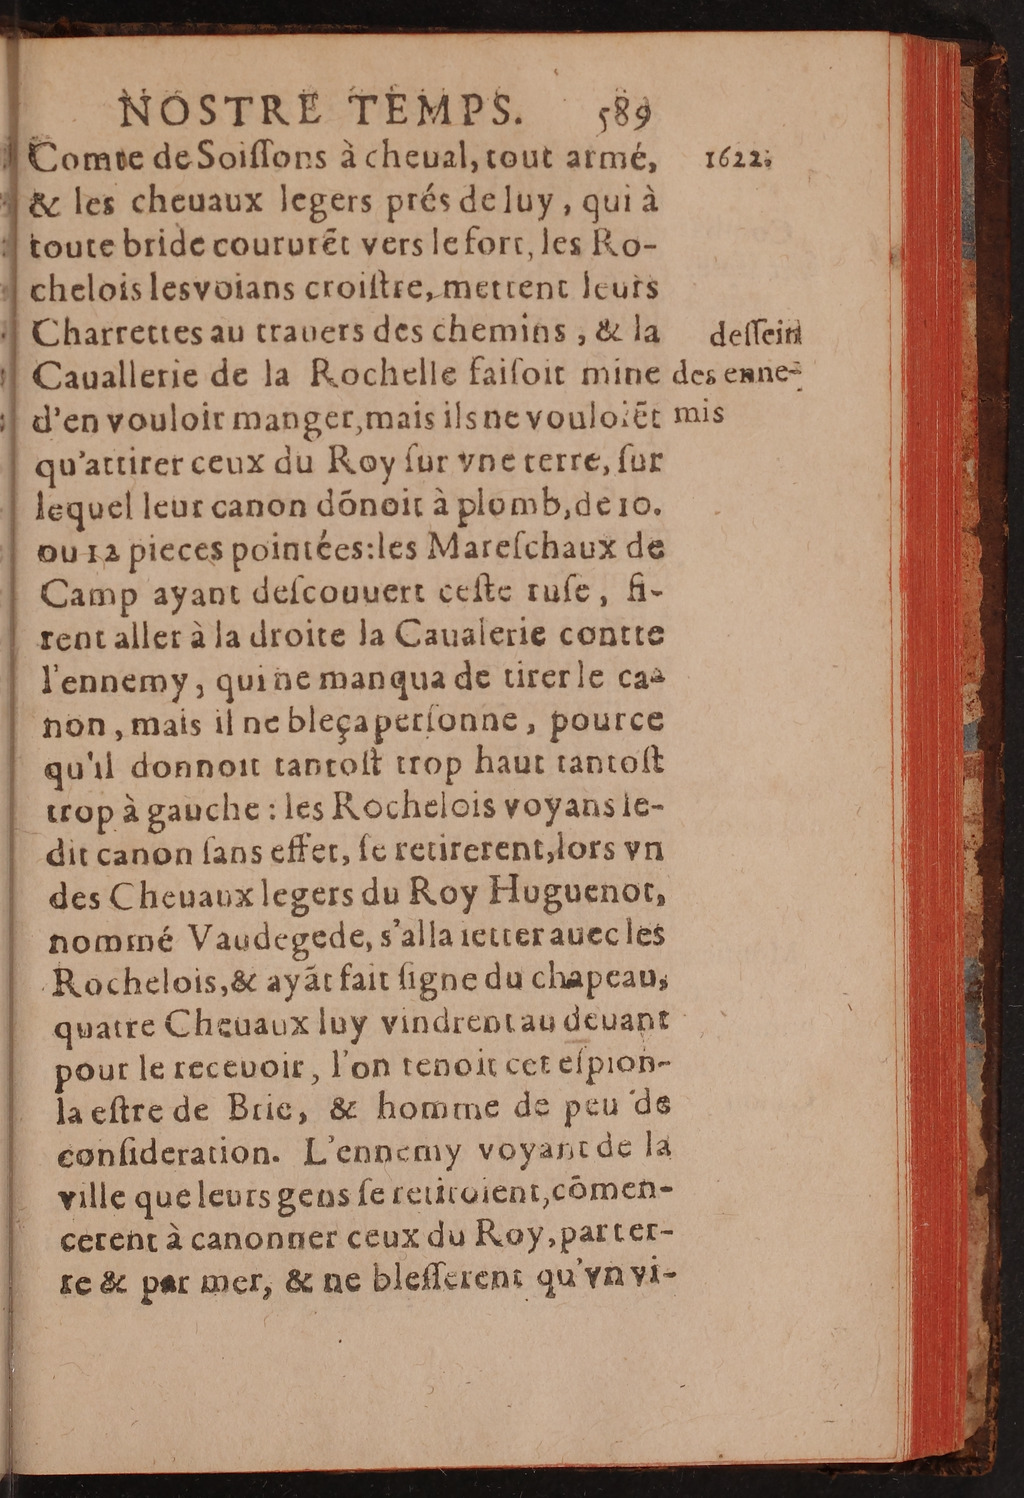 NOSTRE TEMPS. 589
Comte de Soiſſons à cheual, tout armé, 1622.
& les cheuaux legers prés de luy, qui à
toute bride coururẽt vers le fort, les Ro-
chelois les voians croiſtre, mettent leurs
Charrettes au trauers des chemins, & la deſſein
Cauallerie de la Rochelle faiſoit mine des enne-
d'en vouloir manger, mais ils ne vouloiẽt mis
qu'attirer ceux du Roy ſur vne terre, ſur
lequel leur canon dõnoit à plomb, de 10.
ou 12 pieces pointées: les Mareſchaux de
Camp ayant deſcouuert ceſte ruſe, fi-
rent aller à la droite la Caualerie contre
l'ennemy, qui ne manqua de tirer le ca-
non, mais il ne bleça perſonne, pource
qu'il donnoit tantoſt trop haut tantoſt
trop à gauche : les Rochelois voyans le-
dit canon ſans effet, ſe retirerent, lors vn
des Cheuaux legers du Roy Huguenot,
nommé Vaudegede, s'alla ietter auec les
Rochelois, & ayãt fait ſigne du chapeau,
quatre Cheuaux luy vindrent au deuant
pour le receuoir, l'on tenoit cet eſpion-
la eſtre de Brie, & homme de peu de
conſideration. L'ennemy voyant de la
ville que leurs gens ſe retiroient, cõmen-
cerent à canonner ceux du Roy, par ter-
re & par mer, & ne bleſſerent qu'vn vi-